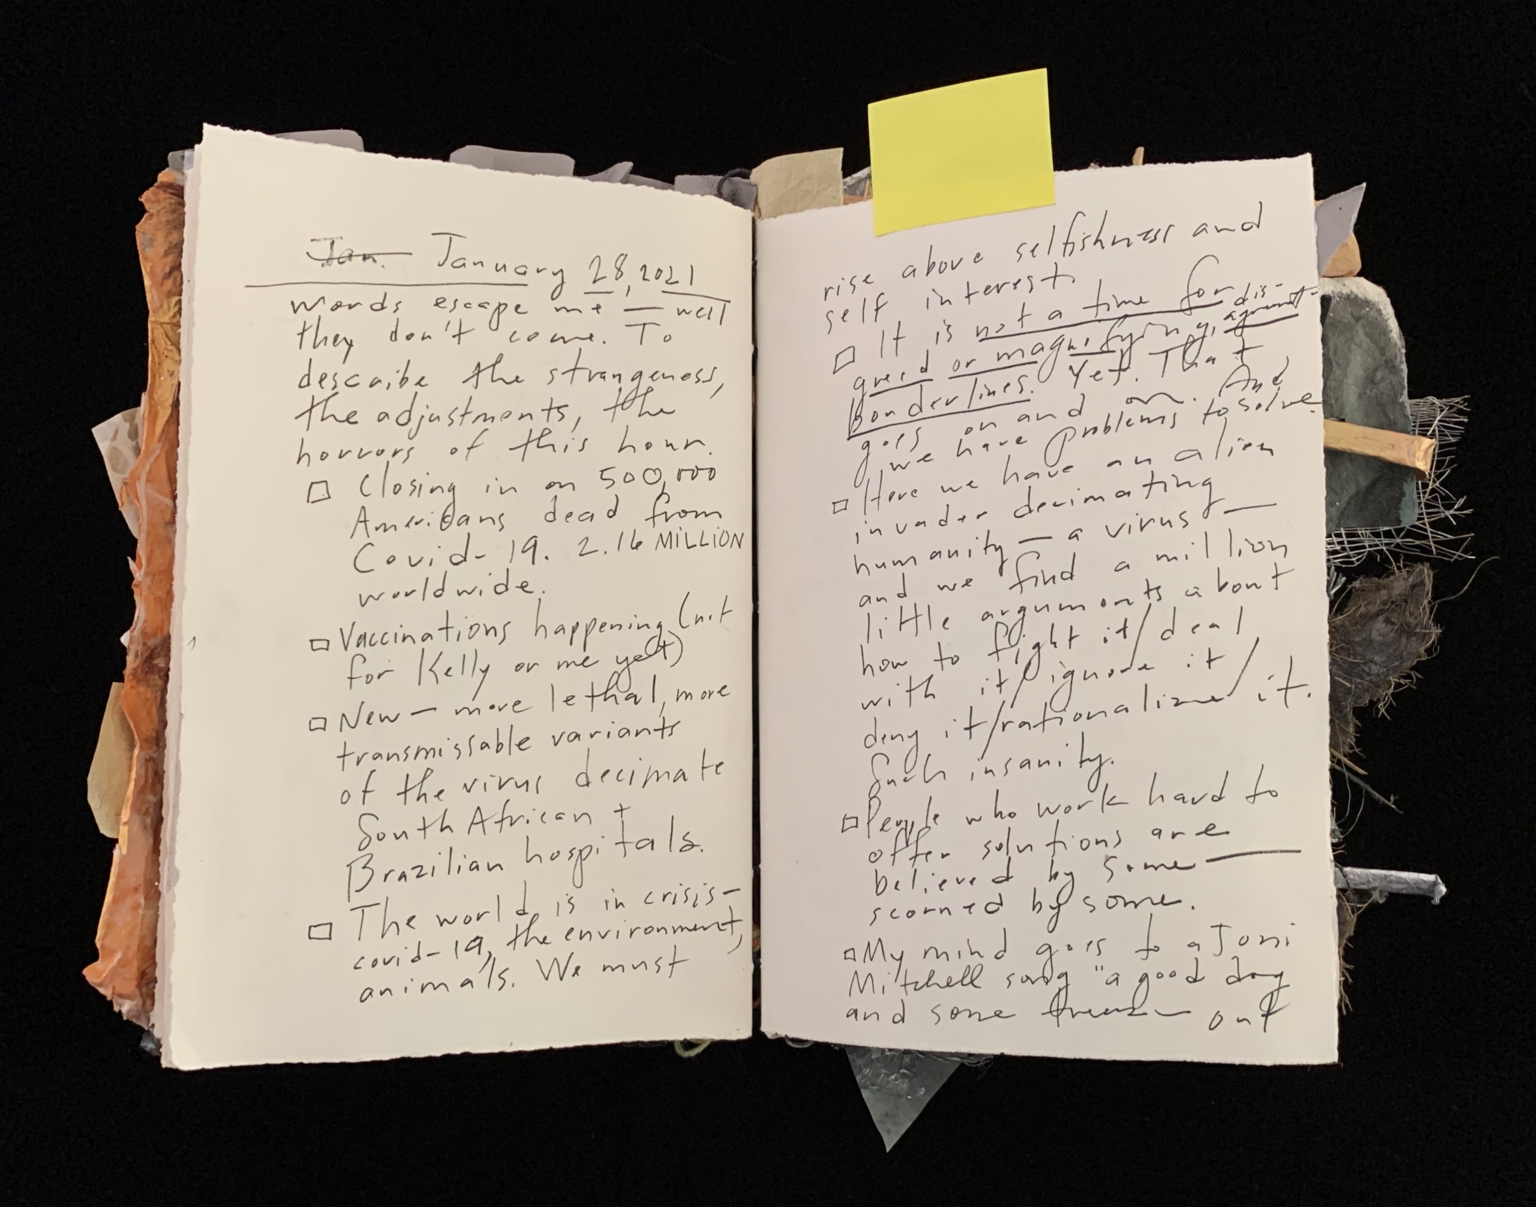 Jan. January 28, 2021
words escape me — well
they don't come. To
describe the strangeness,
the adjustments, the
horrors of this hour.
□ Closing in on 500,000
Americans dead from
Covid-19. 2.16 MILLION
worldwide.
□ Vaccinations happening (not
for Kelly or me yet)
□ New — more lethal, more
transmissable variants
of the virus decimate
South African +
Brazilian hospitals.
□ The world is in crisis —
covid-19, the environment,
animals. We must
rise above selfishness and
self interest.
□ It is not a time for
greed or magnifying dis-agreement
borderlines. Yet. That
goes on and on. And
we have problems to solve.
□ Here we have an alien
invader decimating
humanity — a virus —
and we find a million
little arguments about
how to fight it/deal
with it/ignore it/
deny it/rationalize it.
Such insanity.
□ People who work hard to
offer solutions are
believed by some —
scorned by some.
□ My mind goes to a Joni
Mitchell song "a good dog
and some trees — out